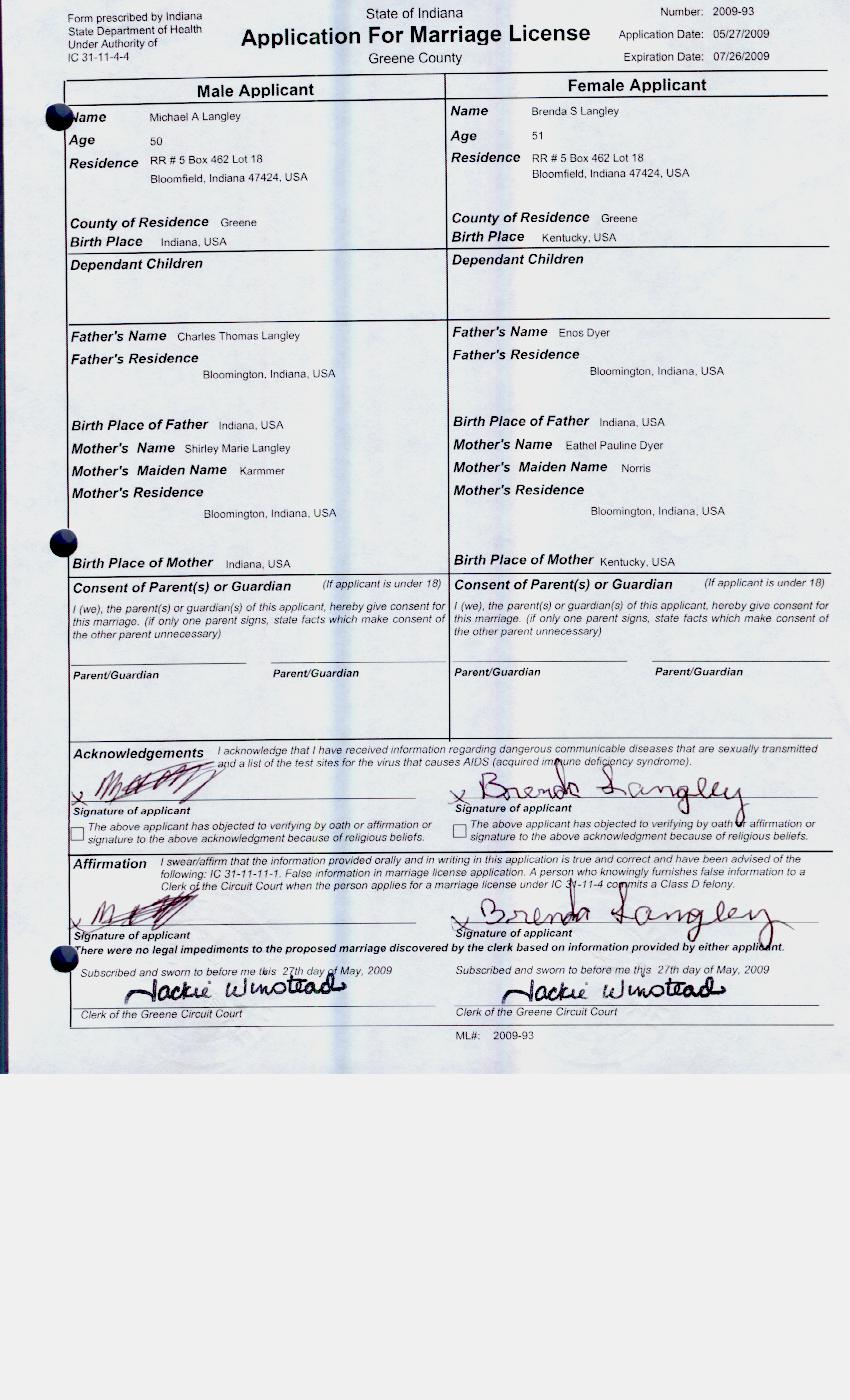 Form prescribed by Indiana
State Department of Health
Under Authority of
IC 31-11-4-4
State of Indiana
Application For Marriage License
Greene County
Number: 2009-93
Application Date: 05/27/2009
Expiration Date: 07/26/2009
Male Applicant
Name Michael A Langley
Age 50
Residence RR # 5 Box 462 Lot 18
Bloomfield, Indiana 47424, USA
County of Residence Greene
Birth Place Indiana, USA
Dependant Children
Father's Name Charles Thomas Langley
Father's Residence
Bloomington, Indiana, USA
Birth Place of Father Indiana, USA
Mother's Name Shirley Marie Langley
Mother's Maiden Name Karmmer
Mother's Residence
Bloomington, Indiana, USA
Birth Place of Mother Indiana, USA
Consent of Parent(s) or Guardian (If applicant is under 18)
I (we), the parent(s) or guardian(s) of this applicant, hereby give consent for
this marriage. (if only one parent signs, state facts which make consent of
the other parent unnecessary)
Parent/Guardian Parent/Guardian
Female Applicant
Name Brenda S Langley
Age 51
Residence RR # 5 Box 462 Lot 18
Bloomfield, Indiana 47424, USA
County of Residence Greene
Birth Place Kentucky, USA
Dependant Children
Father's Name Enos Dyer
Father's Residence
Bloomington, Indiana, USA
Birth Place of Father Indiana, USA
Mother's Name Eathel Pauline Dyer
Mother's Maiden Name Norris
Mother's Residence
Bloomington, Indiana, USA
Birth Place of Mother Kentucky, USA
Consent of Parent(s) or Guardian (If applicant is under 18)
I (we), the parent(s) or guardian(s) of this applicant, hereby give consent for
this marriage. (if only one parent signs, state facts which make consent of
the other parent unnecessary)
Parent/Guardian Parent/Guardian
Acknowledgements I acknowledge that I have received information regarding dangerous communicable diseases that are sexually transmitted
and a list of the test sites for the virus that causes AIDS (acquired immune deficiency syndrome).
x
x Brenda Langley
Signature of applicant
Signature of applicant
The above applicant has objected to verifying by oath or affirmation or
signature to the above acknowledgment because of religious beliefs.
The above applicant has objected to verifying by oath or affirmation or
signature to the above acknowledgment because of religious beliefs.
Affirmation I swear/affirm that the information provided orally and in writing in this application is true and correct and have been advised of the
following: IC 31-11-11-1. False information in marriage license application. A person who knowingly furnishes false information to a
Clerk of the Circuit Court when the person applies for a marriage license under IC 31-11-4 commits a Class D felony.
x
x Brenda Langley
Signature of applicant
Signature of applicant
There were no legal impediments to the proposed marriage discovered by the clerk based on information provided by either applicant.
Subscribed and sworn to before me this 27th day of May, 2009
Jackie Winstead
Clerk of the Greene Circuit Court
Subscribed and sworn to before me this 27th day of May, 2009
Jackie Winstead
Clerk of the Greene Circuit Court
ML#: 2009-93